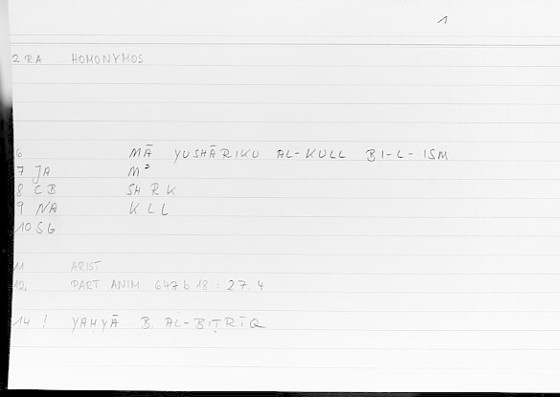 1
2 RA HOMONYMOS
6 MĀ YUSHĀRIKU AL-KULL BI-L-ISM
7 JA Mᵓ
8 CB SH R K
9 NA K L L
10 SG
11 ARIST
12. PART ANIM 647 b 18 : 27.4
14 ! YAḤYĀ B. AL-BIṬRĪQ